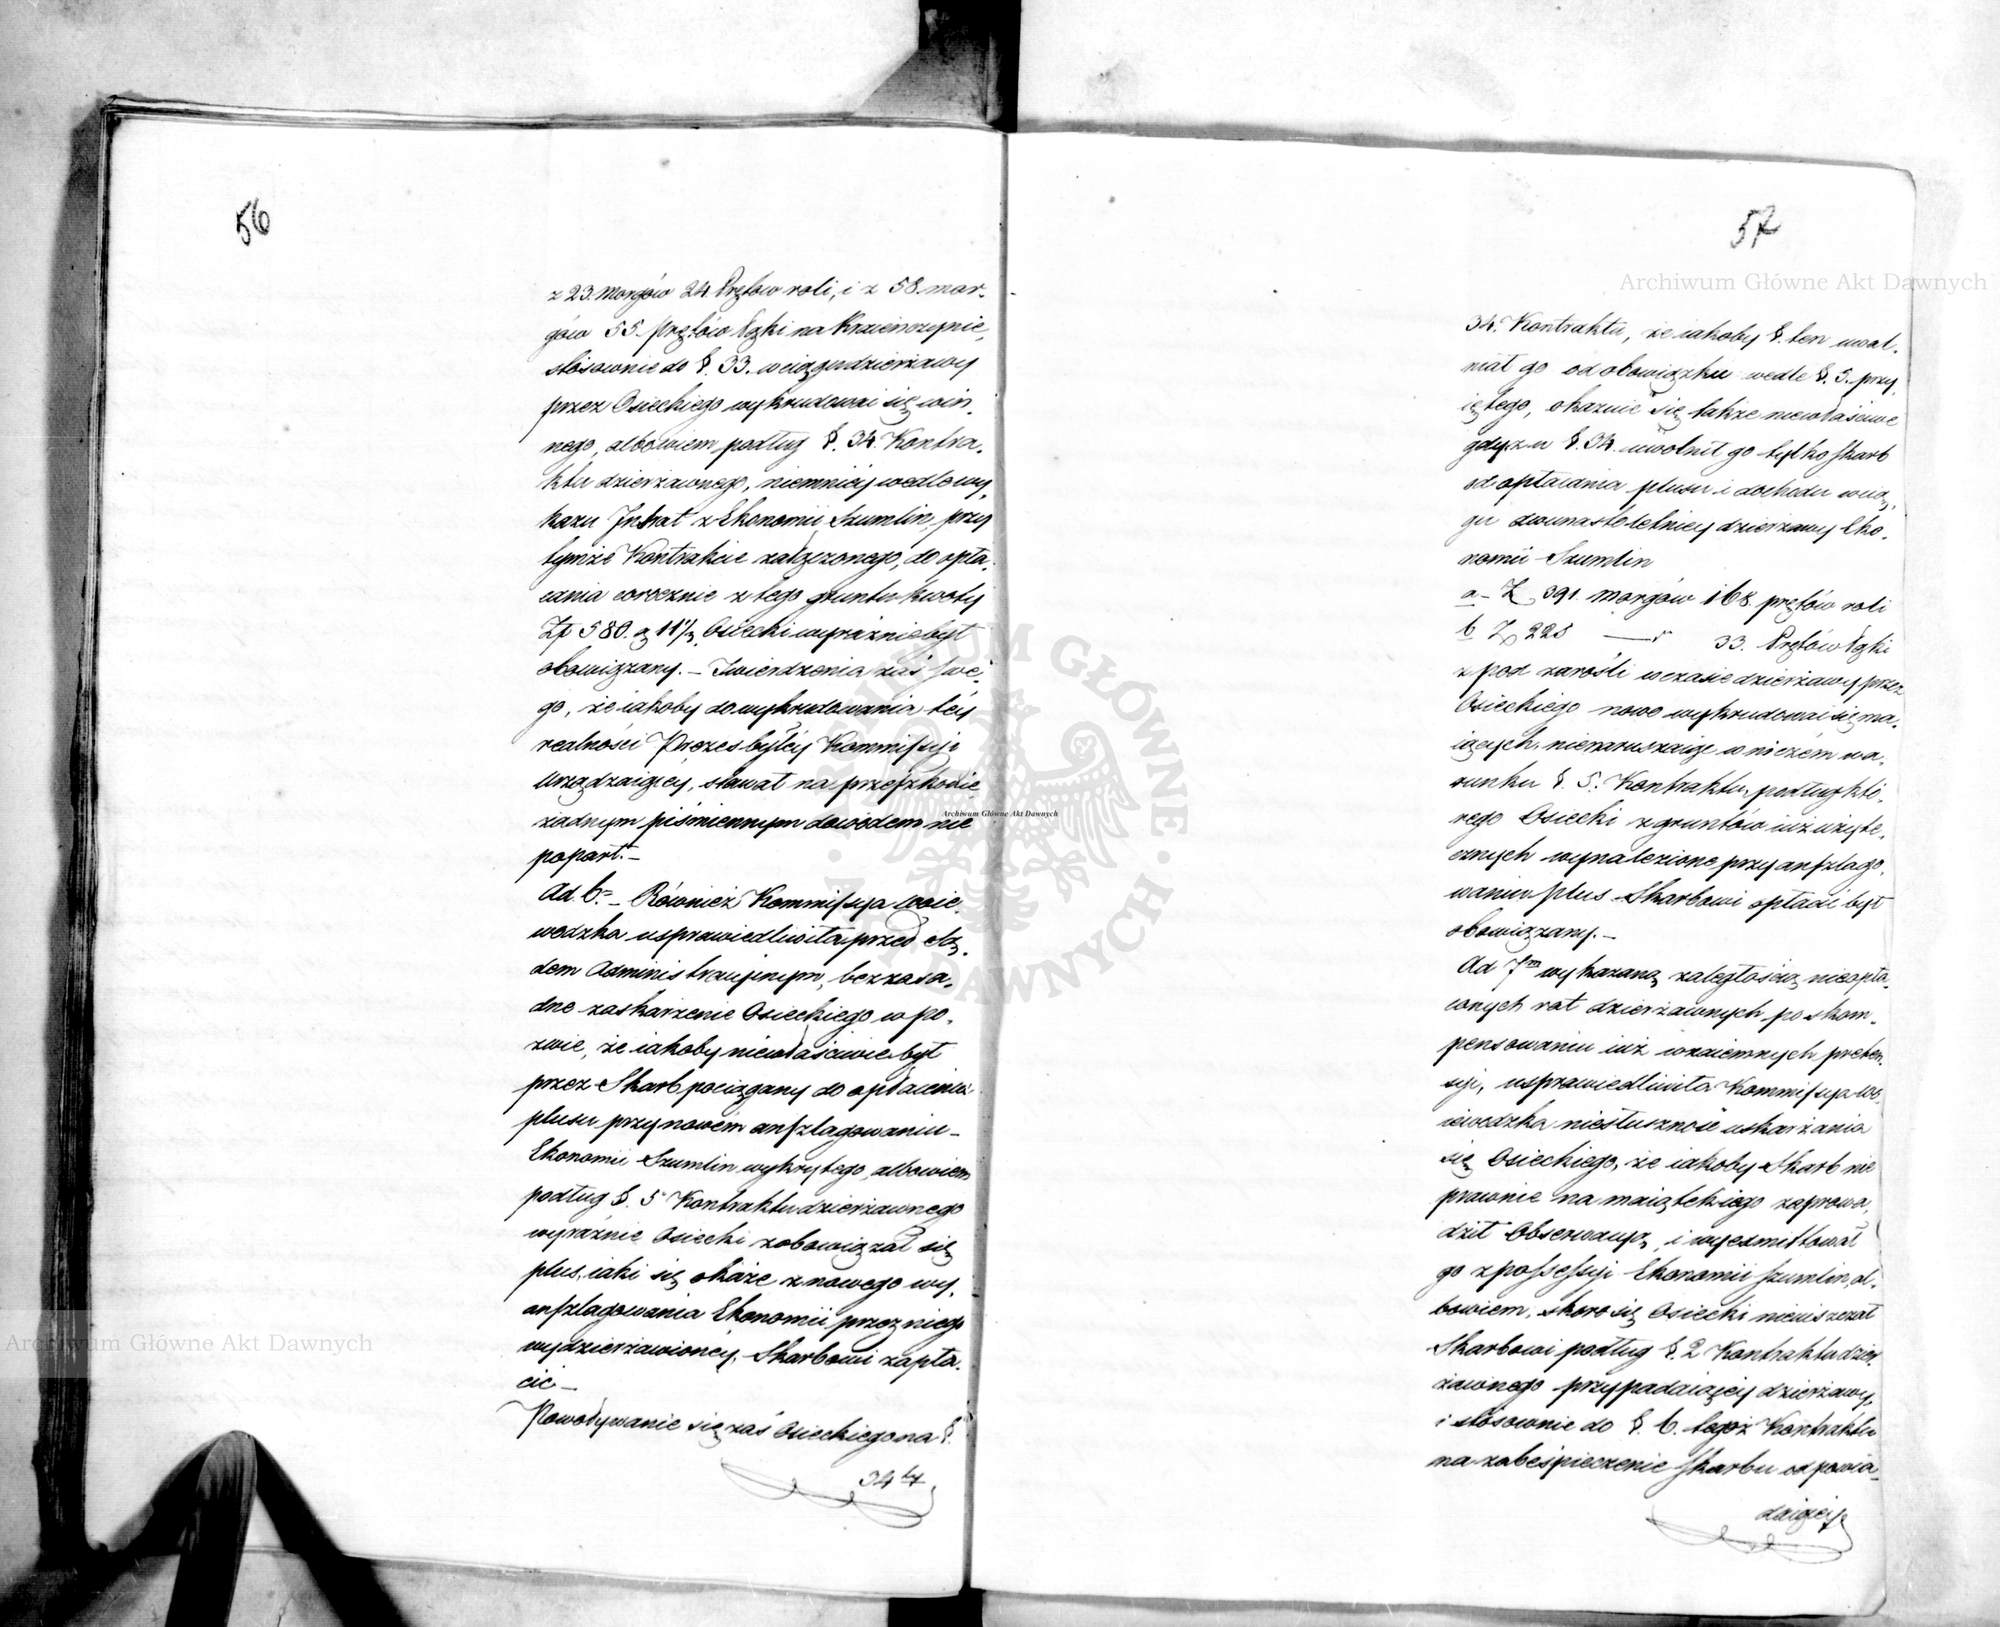 56
z 23. Morgów 24. Prętow roli, i z 58. mor-
gów 55. prętów łąki na Krzienczynie,
stósownie do §. 33. w ciągu dzierżawy
przez Osieckiego wykrudować się win-
nego, albowiem podług §. 34. Kontra-
ktu dzierżawnego, niemniéy wedle wy-
kazu Intrat z Ekonomii Szumlin, przy
tymże Kontrakcie załączonego, do opła-
cania corocznie z tego gruntu kwoty
Zp 580. g 11 1/2, Osiecki wyraźnie był
obowiązany. – Twierdzenia zaś swe-
go, że iakoby do wykrudowania téy
realności Prezes byłéy Kommissyi
urządzaiącéy, stawał na przeszkodzie
żadnym piśmiennym dowodem nie
poparł. –
Ad 6. – Również Kommissyja woie-
wodzka usprawiedliwiła przed Są-
dem Administracyinym, bezzasa-
dne zaskarzenie Osieckiego w po-
zwie, że iakoby niewłaściwie był
przez Skarb pociągany do opłacenia
plusu przy nowém anszlagowaniu
Ekonomii Szumlin wykrytego, albowiem
podług §. 5 Kontraktu dzierżawnego
wyraźnie Osiecki zobowiązał się
plus, iaki się okaże z nowego wy-
anszlagowania Ekonomii przez niego
wydzierżawionéy, Skarbowi zapła-
cić –
Powoływanie się zaś Osieckiego na §.
34ty
57
34. Kontraktu, że iakoby §. ten uwal-
niał go od obowiązku wedle §. 5. przy-
iętego, okazuie się także niewłaściwe
gdyż w §. 34. uwolnił go tylko skarb
od opłacania plusu i dochodu w cią-
gu dwunastoletniey dzierżawy Eko-
nomii Szumlin
a – Z 391. morgów 168 prętów roli
b Z 225 — " 33. Prętów łąki
z pod zarośli w czasie dzierżawy przez
Osieckiego nowo wykrudować się ma-
iących, nienaruszaiąc w niczém wa-
runku §. 5. Kontraktu, podług któ-
rego Osiecki z gruntów iuż użyte-
cznych wynalezione przy anszlago-
waniu plus Skarbowi opłacić był
obowiązany. –
Ad 7m wykazaną zaległością nieopła-
conych rat dzierżawnych po skom-
pensowaniu iuż wzaiemnych preten-
syi, usprawiedliwiła Kommissyja wo-
iewodzka niesłuszność uskarżania
się Osieckiego, że iakoby Skarb nie
prawnie na maiątek iego zaprowa-
dził Obserwacyą, i wyexmittował
go z possessyi Ekonomii Szumlin, al-
bowiem, skoro się Osiecki nieuiszczał
Skarbowi podług §. 2 Kontraktu dzier-
żawnego przypadaiącéy dzierżawy,
i stósownie do §. 6. tegoż Kontraktu
na zabeśpieczenie skarbu odpowia-
daiącéy
Archiwum Główne Akt Dawnych
Archiwum Główne Akt Dawnych
Archiwum Główne Akt Dawnych
ARCHIWUM GŁÓWNE AKT DAWNYCH